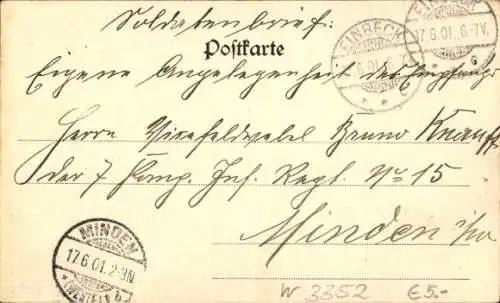 Soldatenbrief:
Postkarte
Eigene Angelegenheit des Empfängers
Herrn Vicefeldwebel Bruno Knauff
der 7 Komp. Inf. Regt. No 15
Minden i/W
EINBECK
17.6.01. 6-7V.
MINDEN
17.6.01. 2-3N.
* (WESTF.) b
W 3352
€5.-